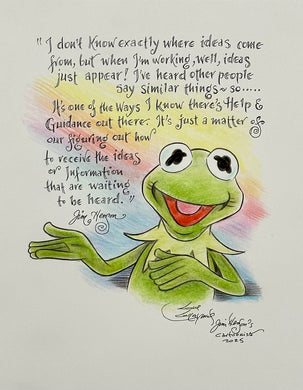 " I don't know exactly where ideas come
from, but when I'm working, well, ideas
just appear! I've heard other people
say similar things~ so.....
It's one of the ways I know there's Help &
Guidance out there. It's just a matter of
our figuring out how
to receive the ideas
or Information
that are waiting
to be heard. "
Jim Henson
Jim Henson's
cartoonist
2025